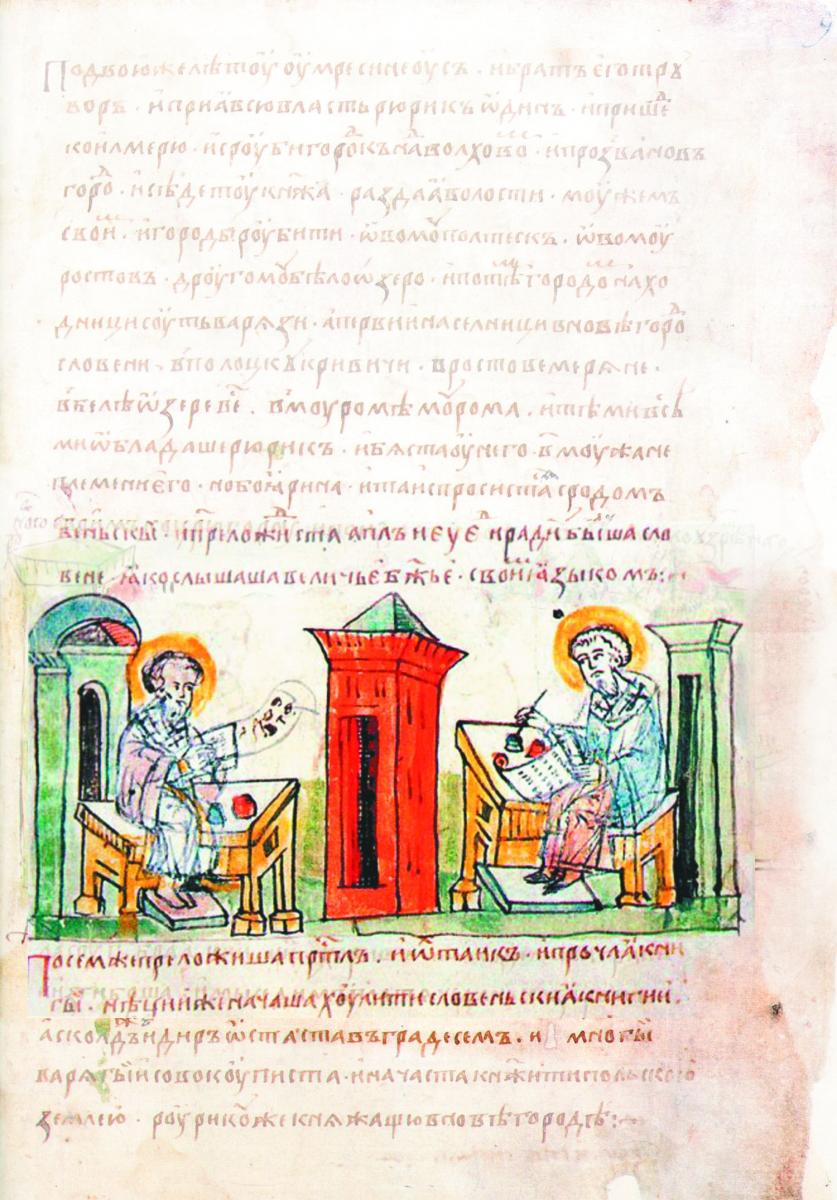 Подвоюжелѣтоу оумресинеоусъ · ибратъеготрꙋ
воръ · иприꙗвсювластьрюрикъѡдинъ · ипришеⷣ
коилмерю · исроубигороⷣкънаⷣволховоⷨ · ипрозвановъ
гороⷣ · исѣдетоукнѧжа · раздаꙗволости · моужемъ
своиⷨ · игородырꙋбити · ѡвомꙋполтескъ · ѡвомоу
ростовъ · дроугомꙋбѣлоѡзеро · ипотѣⷨгородоⷨнахо
дницисоутьварѧзи · апервиинаселницивновѣгороⷣ
словени · вполоцкꙋкривичи · вростовемерѧне ·
вбелѣѡзеревеⷭ · вмоуромѣмꙋрома · итѣмивсѣ
миѡбладашерюрикъ · ибѧстаоунего · в҃моужане
племениего · нобоꙗрина · итаиспросистаⷭ҇сродомъ
веньскы · ипреложистаап҃лъиеуⷢ҇е · ирадибышасло
вене · ꙗкослышашавеличьеб҃жье · своиⷨꙗзыкомъ :~
Посемжепреложишапсⷭ҇тлъ · иѡктаикъ · ипрочаꙗкни
гы · нѣцииженачашахоулитисловеньскиꙗкнигии ·
асколдъжеидиръѡстаставъградесемъ · и многы
варѧгыисовокоуписта · иначастакнѧжитипольскою
землею · роурикꙋжекнѧжащювновѣгородѣ :~